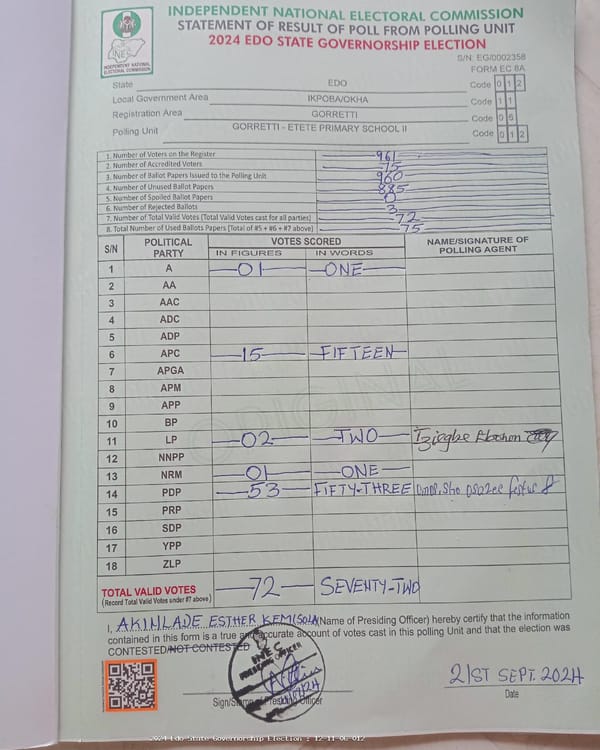 INDEPENDENT NATIONAL ELECTORAL COMMISSION
STATEMENT OF RESULT OF POLL FROM POLLING UNIT
2024 EDO STATE GOVERNORSHIP ELECTION
INEC
INDEPENDENT NATIONAL ELECTORAL COMMISSION
S/N: EG/0002358
FORM EC 8A
State EDO Code 0 1 2
Local Government Area IKPOBA/OKHA Code 1 1
Registration Area GORRETTI Code 0 6
Polling Unit GORRETTI - ETETE PRIMARY SCHOOL II Code 0 1 2
1. Number of Voters on the Register 961
2. Number of Accredited Voters 75
3. Number of Ballot Papers Issued to the Polling Unit 960
4. Number of Unused Ballot Papers 885
5. Number of Spoiled Ballot Papers 0
6. Number of Rejected Ballots 3
7. Number of Total Valid Votes (Total Valid Votes cast for all parties) 72
8. Total Number of Used Ballots Papers [Total of #5 + #6 + #7 above) 75
S/N POLITICAL PARTY VOTES SCORED NAME/SIGNATURE OF POLLING AGENT
IN FIGURES IN WORDS
1 A 01 ONE
2 AA
3 AAC
4 ADC
5 ADP
6 APC 15 FIFTEEN
7 APGA
8 APM
9 APP
10 BP
11 LP 02 TWO
12 NNPP
13 NRM 01 ONE
14 PDP 53 FIFTY-THREE
15 PRP
16 SDP
17 YPP
18 ZLP
ORIGINAL
TOTAL VALID VOTES 72 SEVENTY-TWO
(Record Total Valid Votes under #7 above)
I, AKINLADE ESTHER KEMISOLA (Name of Presiding Officer) hereby certify that the information
contained in this form is a true and accurate account of votes cast in this polling Unit and that the election was
CONTESTED/NOT CONTESTED
INEC
PRESIDING OFFICER
21ST SEPT. 2024
Sign/Stamp of Presiding Officer Date
2024 Edo State Governorship Election : 12-11-06-012